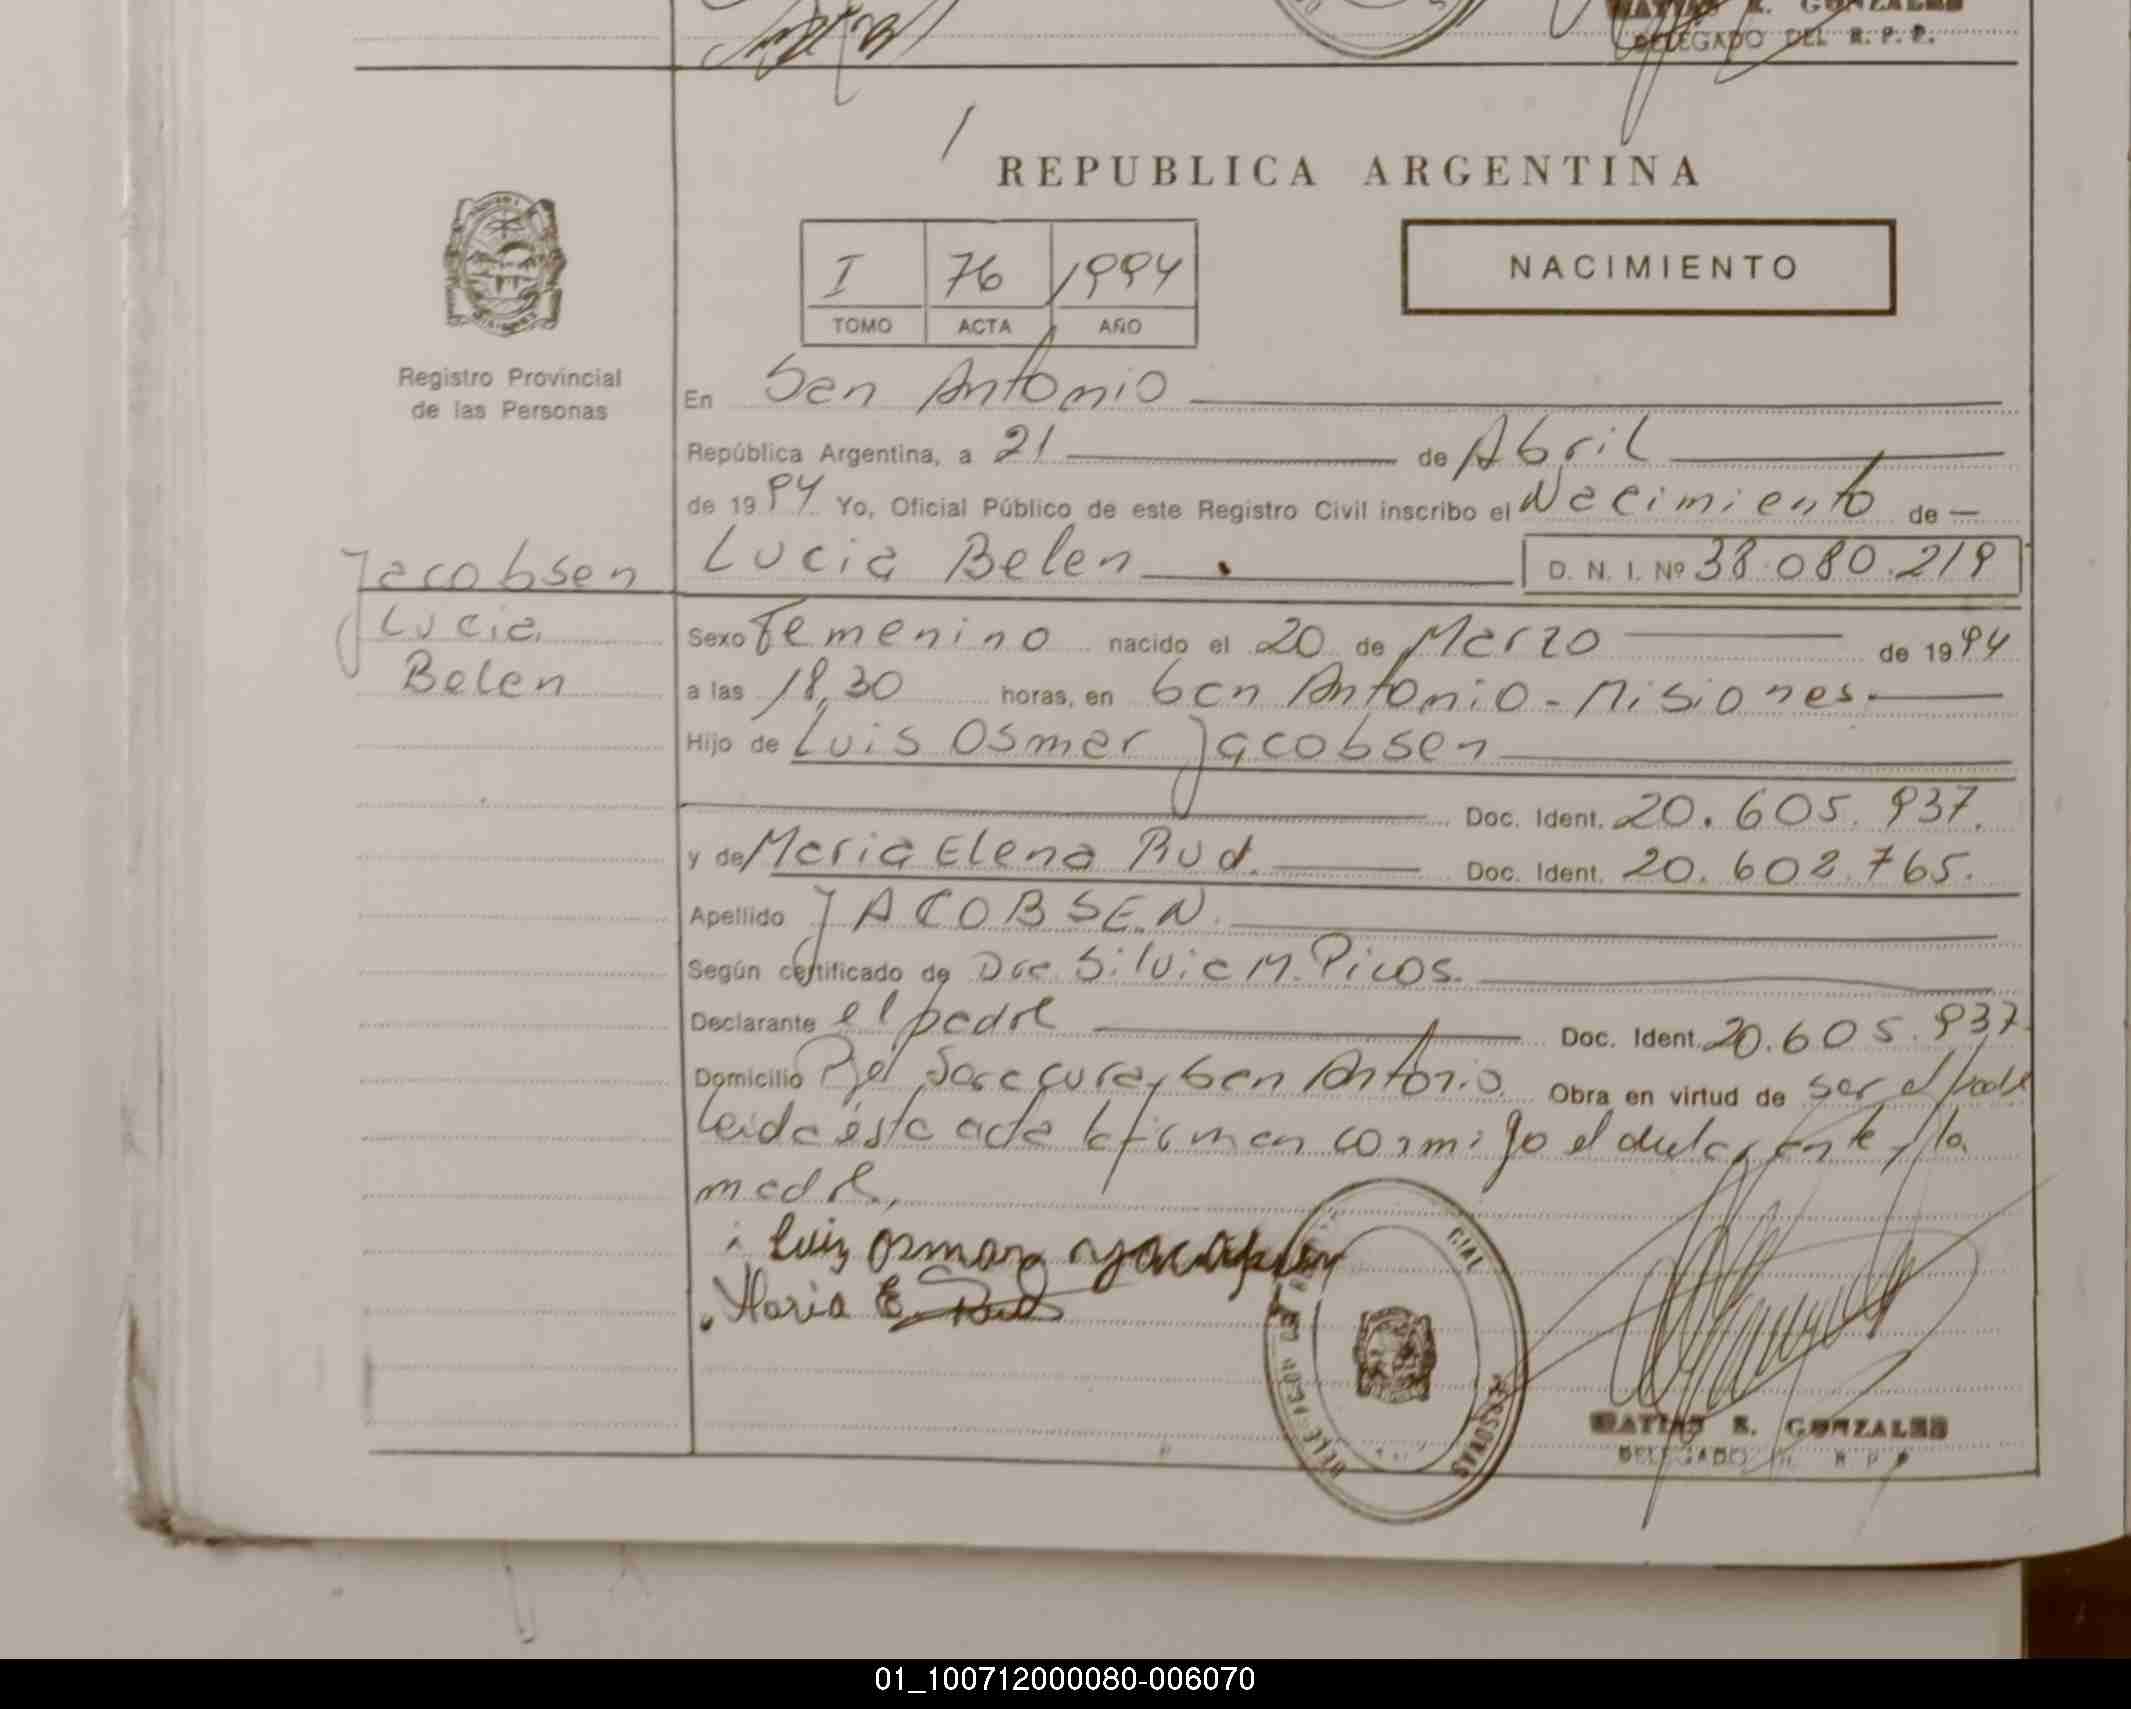 MATIAS E. GONZALES
DELEGADO DEL R. P. P.
REPUBLICA ARGENTINA
I 76 1994
TOMO ACTA AÑO
NACIMIENTO
Registro Provincial
de las Personas
Jacobsen
Lucia
Belen
En San Antonio
República Argentina, a 21 de Abril
de 1994 Yo, Oficial Público de este Registro Civil inscribo el Nacimiento de
Lucia Belen D. N. I. Nº 38.080.219
Sexo Femenino nacido el 20 de Marzo de 1994
a las 18,30 horas, en San Antonio - Misiones.
Hijo de Luis Osmar Jacobsen
Doc. Ident. 20.605.937.
y de Maria Elena Rud. Doc. Ident. 20.602.765.
Apellido JACOBSEN.
Según certificado de Dra. Silvia M. Picos.
Declarante el padre Doc. Ident. 20.605.937
Domicilio San Antonio. Obra en virtud de ser el padre
Leida ésta acta la firman conmigo el declarante y la
madre,
Luiz Osmar
Maria E. Rud
PERSONAS
MATIAS E. GONZALES
DELEGADO R P P
01_100712000080-006070